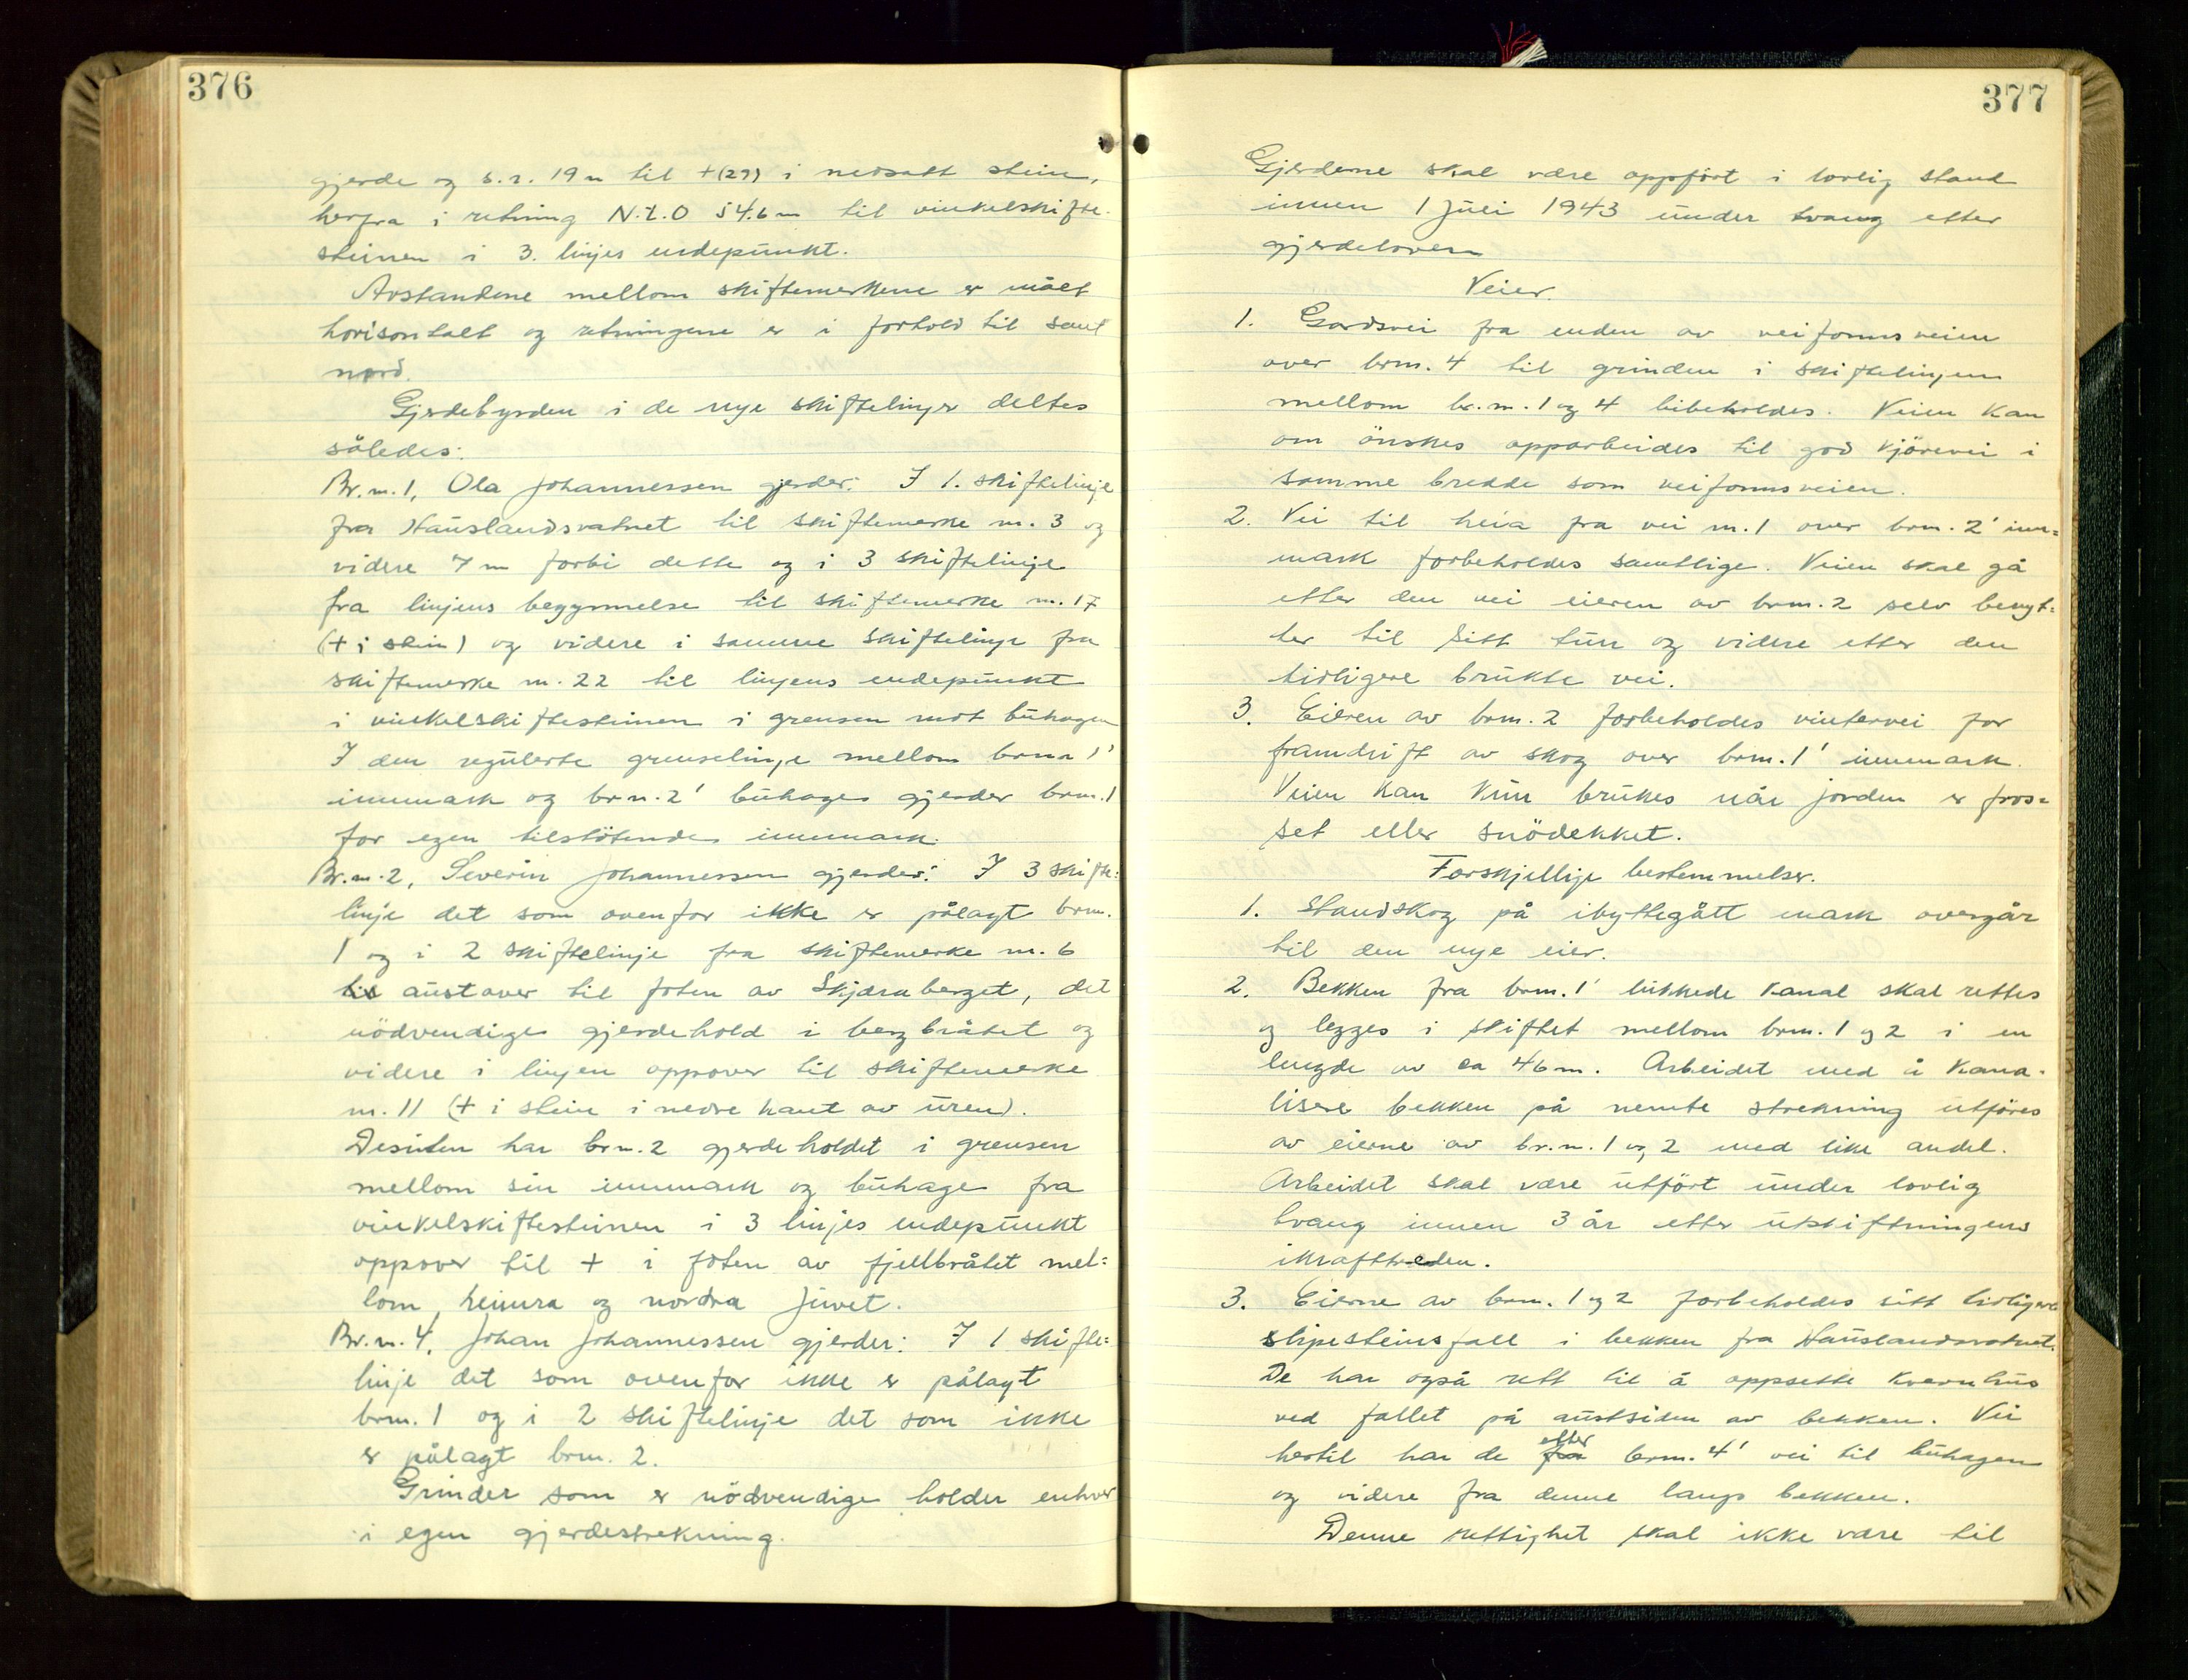 376
gjerde og s.r. 19 m til +(27) i nedsatt stein,
herfra i retning N.t.O 54.6 m til vinkelskifte-
steinen i 3. linjes endepunkt.
Avstandene mellom skiftemerkene er målt
horisontalt og retningene er i forhold til sant
nord.
Gjerdebyrden i de nye skiftelinjer deltes
således:
Br.nr. 1, Ola Johannessen gjerder: I 1. skiftelinje
fra Hauslandsvatnet til skiftemerke nr. 3 og
videre 7 m forbi dette og i 3 skiftelinje
fra linjens begynnelse til skiftemerke nr. 17
(+ i stein) og videre i samme skiftelinje fra
skiftemerke nr. 22 til linjens endepunkt
i vinkelskiftesteinen i grensen mot buhagen
I den regulerte grenselinje mellom brnr 1'
innmark og brnr. 2' buhage gjerder brnr. 1
for egen tilstötende innmark.
Br.nr. 2, Severin Johannessen gjerder: I 3 skifte=
linje det som ovenfor ikke er pålagt brnr.
1 og i 2 skiftelinje fra skiftemerke nr. 6
til austover til foten av Skjæraberget, det
nödvendige gjerdehold i bergbråtet og
videre i linjen oppover til skiftemerke
nr. 11 (+ i stein i nedre kant av uren).
Desuten har brnr. 2 gjerdeholdet i grensen
mellom sin innmark og buhage fra
vinkelskiftesteinen i 3 linjes endepunkt
oppover til + i foten av fjellbråtet mel=
lom heiura og nordra juvet.
Br.nr. 4, Johan Johannessen gjerder: I 1 skifte=
linje det som ovenfor ikke er pålagt
brnr. 1 og i 2 skiftelinje det som ikke
er pålagt brnr. 2.
Grinder som er nödvendige holder enhver
i egen gjerdestrekning.
377
Gjerderne skal være oppfört i lovlig stand
innen 1 Juli 1943 under tvang etter
gjerdeloven
Veier.
1. Gardsvei fra enden av veifonnsveien
over brnr. 4 til grinden i skiftelinjen
mellom br.nr. 1 og 4 bibeholdes. Veien kan
om önskes opparbeides til god kjörevei i
samme bredde som veifonnsveien.
2. Vei til heia fra vei nr. 1 over brnr. 2' inn=
mark forbeholdes samtlige. Veien skal gå
etter den vei eieren av brnr. 2 selv benyt=
ter til sitt tun og videre etter den
tidligere brukte vei.
3. Eieren av brnr. 2 forbeholdes vintervei for
framdrift av skog over brnr. 1' innmark.
Veien kan kun brukes når jorden er fros=
set eller snödekket.
Forskjellige bestemmelser.
1. Standskog på ibyttegått mark overgår
til den nye eier.
2. Bekken fra brnr. 1' lukkede kanal skal rettes
og legges i skiftet mellom brnr. 1 og 2 i en
lengde av ca 46 m. Arbeidet med å kana-
lisere bekken på nemte strekning utföres
av eierne av br.nr. 1 og 2 med like andel.
Arbeidet skal være utfört under lovlig
tvang innen 3 år etter utskiftningens
ikrafttreden.
3. Eierne av brnr. 1 og 2 forbeholdes sitt tidligere
slipesteinsfall i bekken fra Hauslandsvatnet.
De har også rett til å oppsette kvernhus
ved fallet på austsiden av bekken. Vei
hertil har de fra etter brnr. 4' vei til buhagen
og videre fra denne langs bekken.
Denne rettighet skal ikke være til